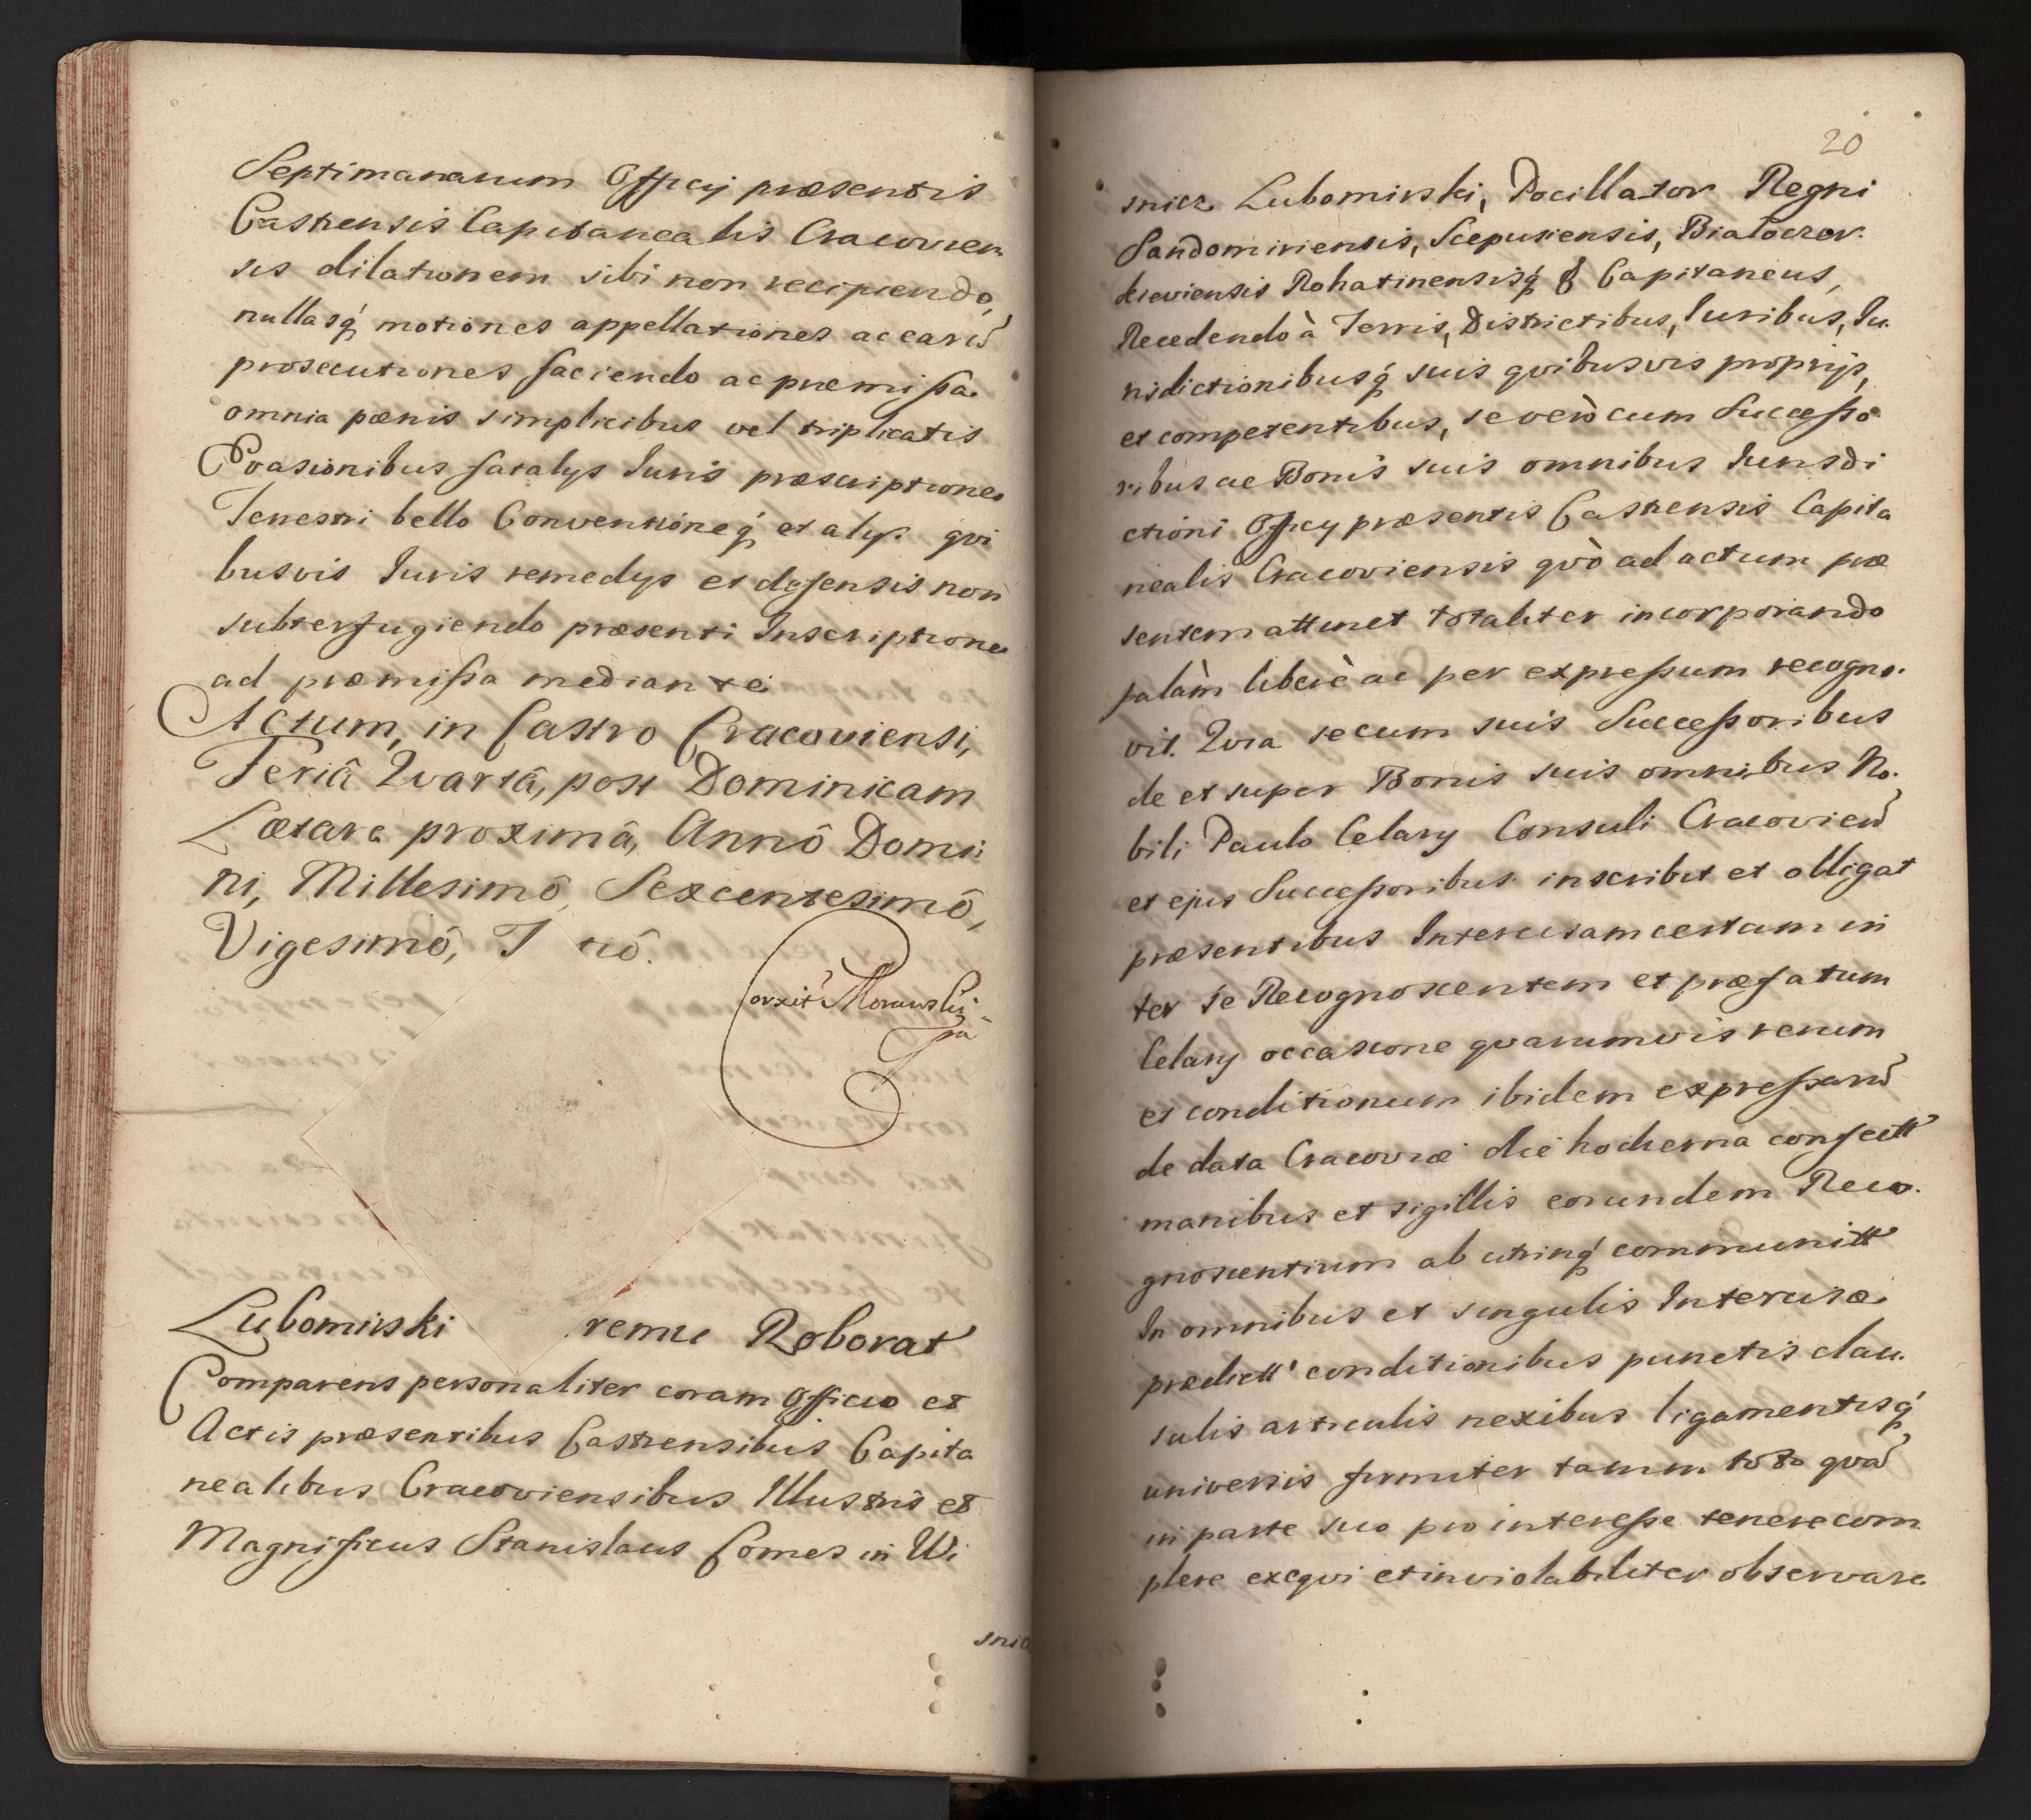 Septimanarum Officij præsentis
Castrensis Capitanealis Cracovien
sis dilationem sibi non recipiendo,
nullasq́ motiones appellationes ac earũ
prosecutiones faciendo ac præmissa
omnia pœnis simplicibus vel triplicatis
Evasionibus fatalys Iuris præscriptione
Terrestri bello Conventioneq́ et alys qvi
busvis Iuris remedys et defensis non
subterfugiendo præsenti Inscriptione
ad præmissa mediante
Actum, in Castro Cracoviensi,
Feriâ Qvartâ, post Dominicam
Lætare proximâ, Annô Domi:
ni, Millesimô, Sexcentesimô,
Vigesimô, T tiô.
Corxit Morawski
mp
Lubomirski remu Roborat
Comparens personaliter coram Officio et
Actis præsentibus Castrensibus Capita
nealibus Cracoviensibus Illustris et
Magnificus Stanislaus Comes in Wi
snic
20
snicz Lubomirski, Pocillator Regni
Sandomiriensis, Scepusiensis, Białocer.
kieviensis Rohatinensisq́ & Capitaneus,
Recedendo à Terris, Districtibus, Iuribus, Iu.
risdictionibusq́ suis qvibusvis proprijs,
et competentibus, se verò cum Successo
ribus ac Bonis suis omnibus Iurisdi
ctioni Officy præsentis Castrensis Capita
nealis Cracoviensis qvò ad actum præ
sentem attinet totaliter incorporando
palàm liberè ac per expressum recogno.
vit. Qvia secum suis Successoribus
de et super Bonis suis omnibus No.
bili Paulo Celary Consuli Cracovien̄
et ejus Successoribus inscribit et obligat
præsentibus Intercisam certam in
ter se Recognoscentem et præfatum
Celary occasione qvarumvis rerum
et conditionum ibidem expressarũ
de data Cracoviæ die hodierna confectt'
manibus et sigillis eorundem Reco.
gnoscentium ab utrinq́ communitt'
In omnibus et singulis Intercisæ
prædictt' conditionibus punctis clau.
sulis articulis nexibus ligamentisq́
universis firmiter tamm toto qvã
in parte suo pro interesse tenere com
plere exeqvi et inviolabiliter observare